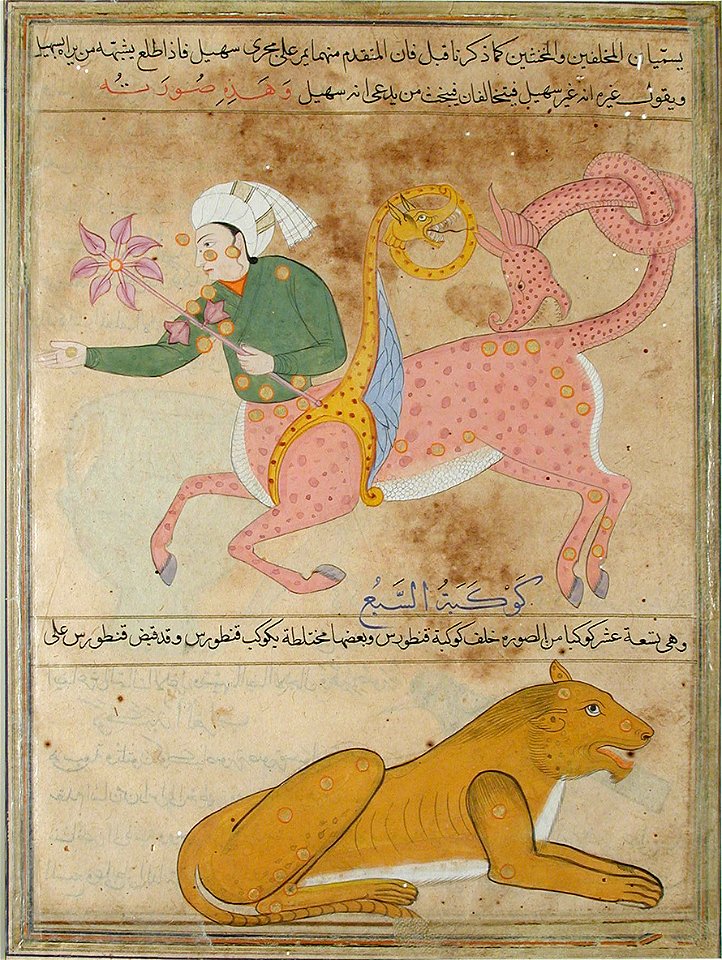 يسميان المحلفين والمحنثين كما ذكرنا قبل فان المتقدم منهما يمر على مجرى سهيل فاذا طلع يشبهه من يراه بسهيل
ويقول غيره انه غير سهيل فيتخالفان فيحنث من يدعى انه سهيل وَهَذِهِ صُورَتُهُ
كَوْكَبَةُ السَّبُعِ
وهى تسعة عشر كوكبا من الصوره خلف كوكبة قنطورس وبعضها مختلطة بكوكب قنطورس وقد قبض قنطورس على